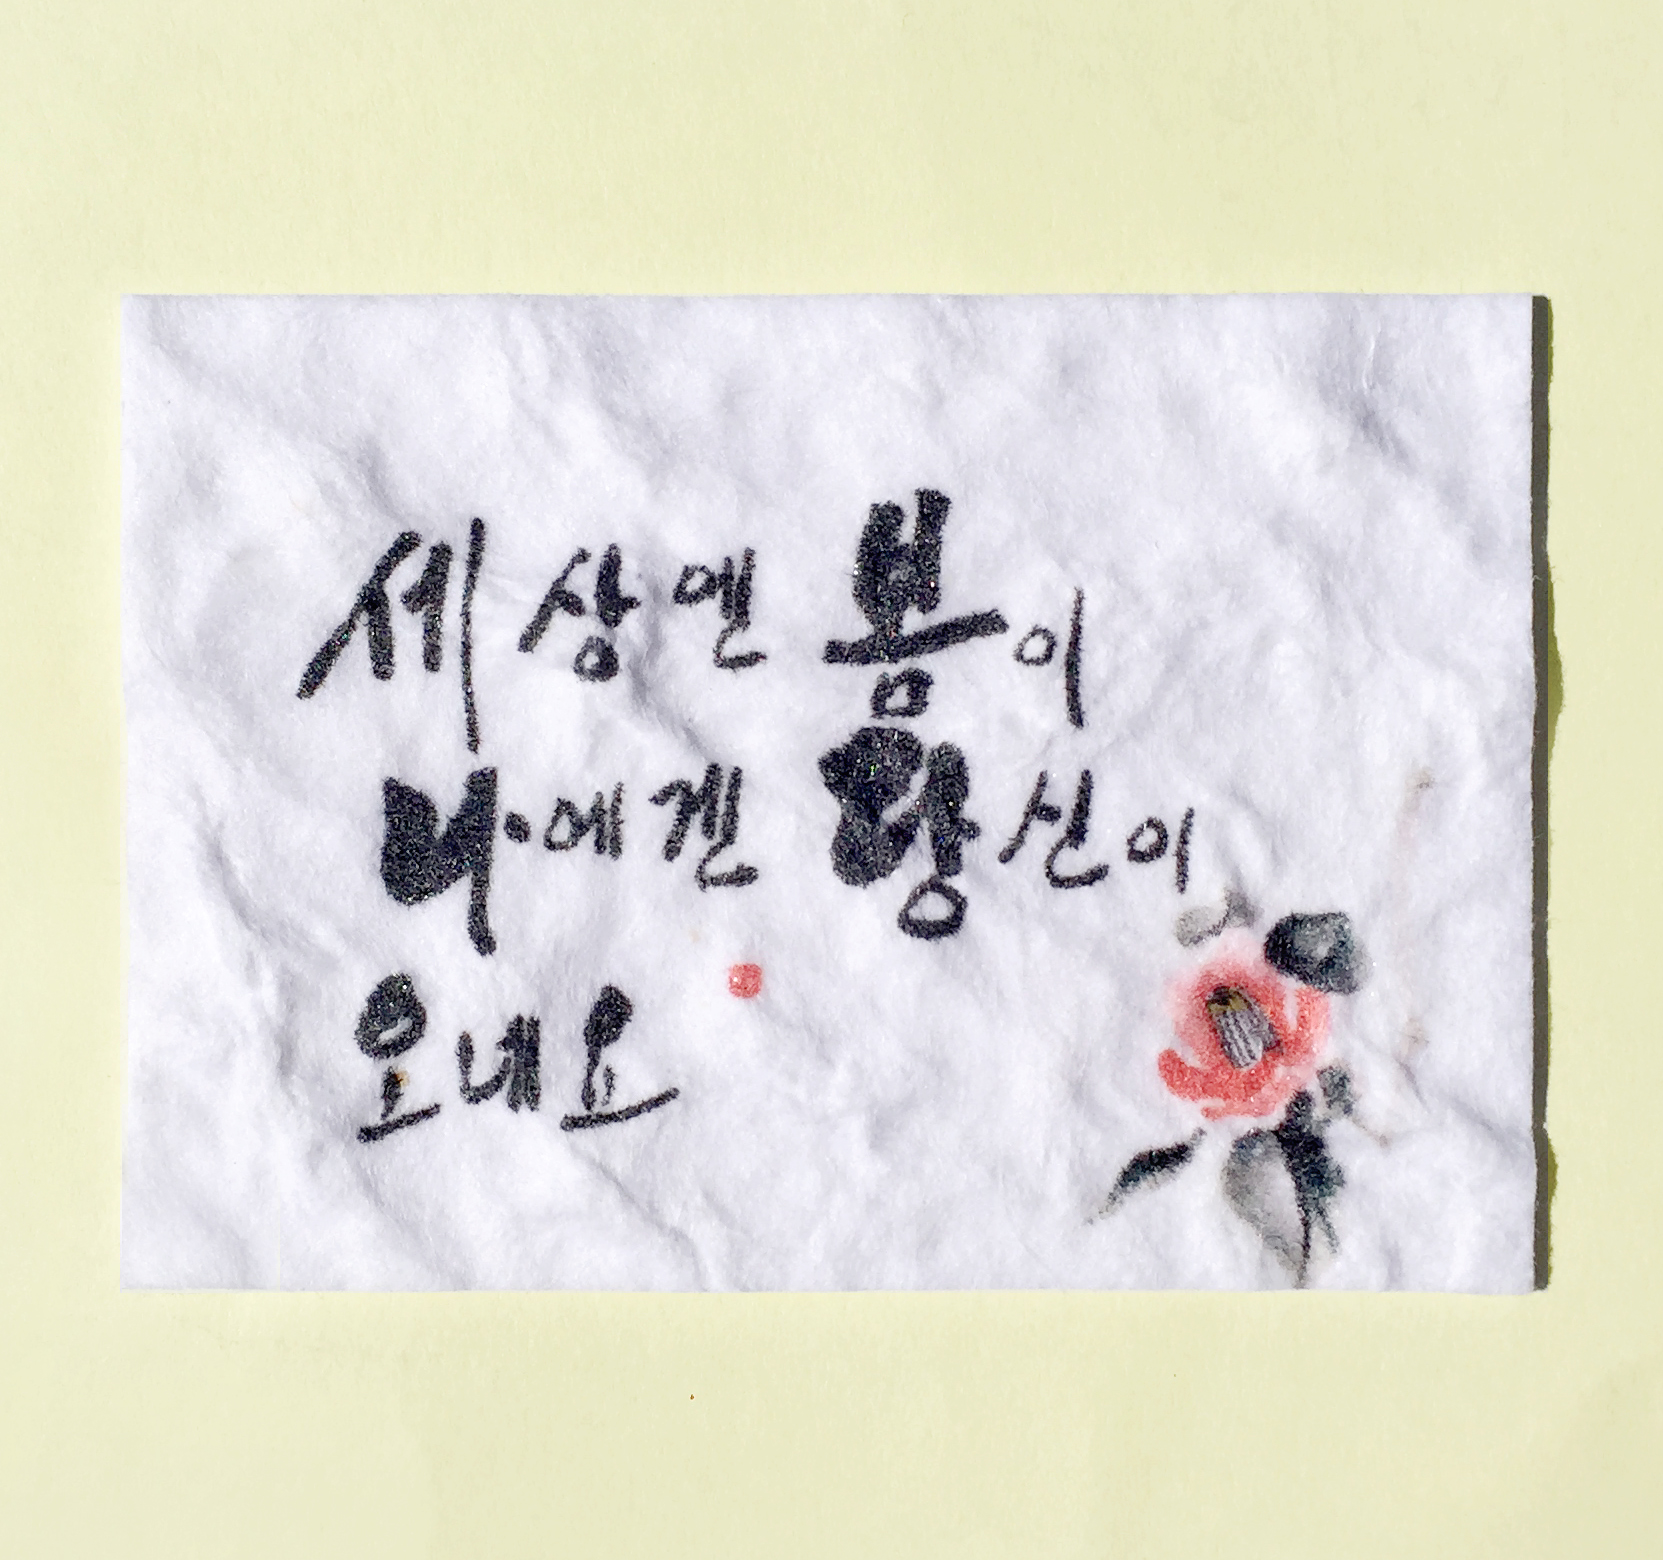 세상엔 봄이
나에겐 당신이
오네요